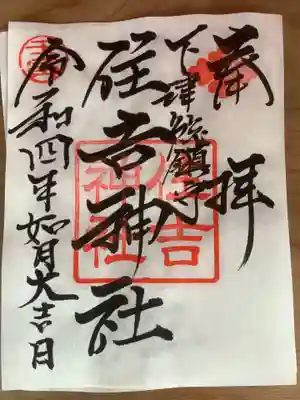 奉拝
下津総鎮守
住吉神社
住吉
神社
令和四年如月大吉日